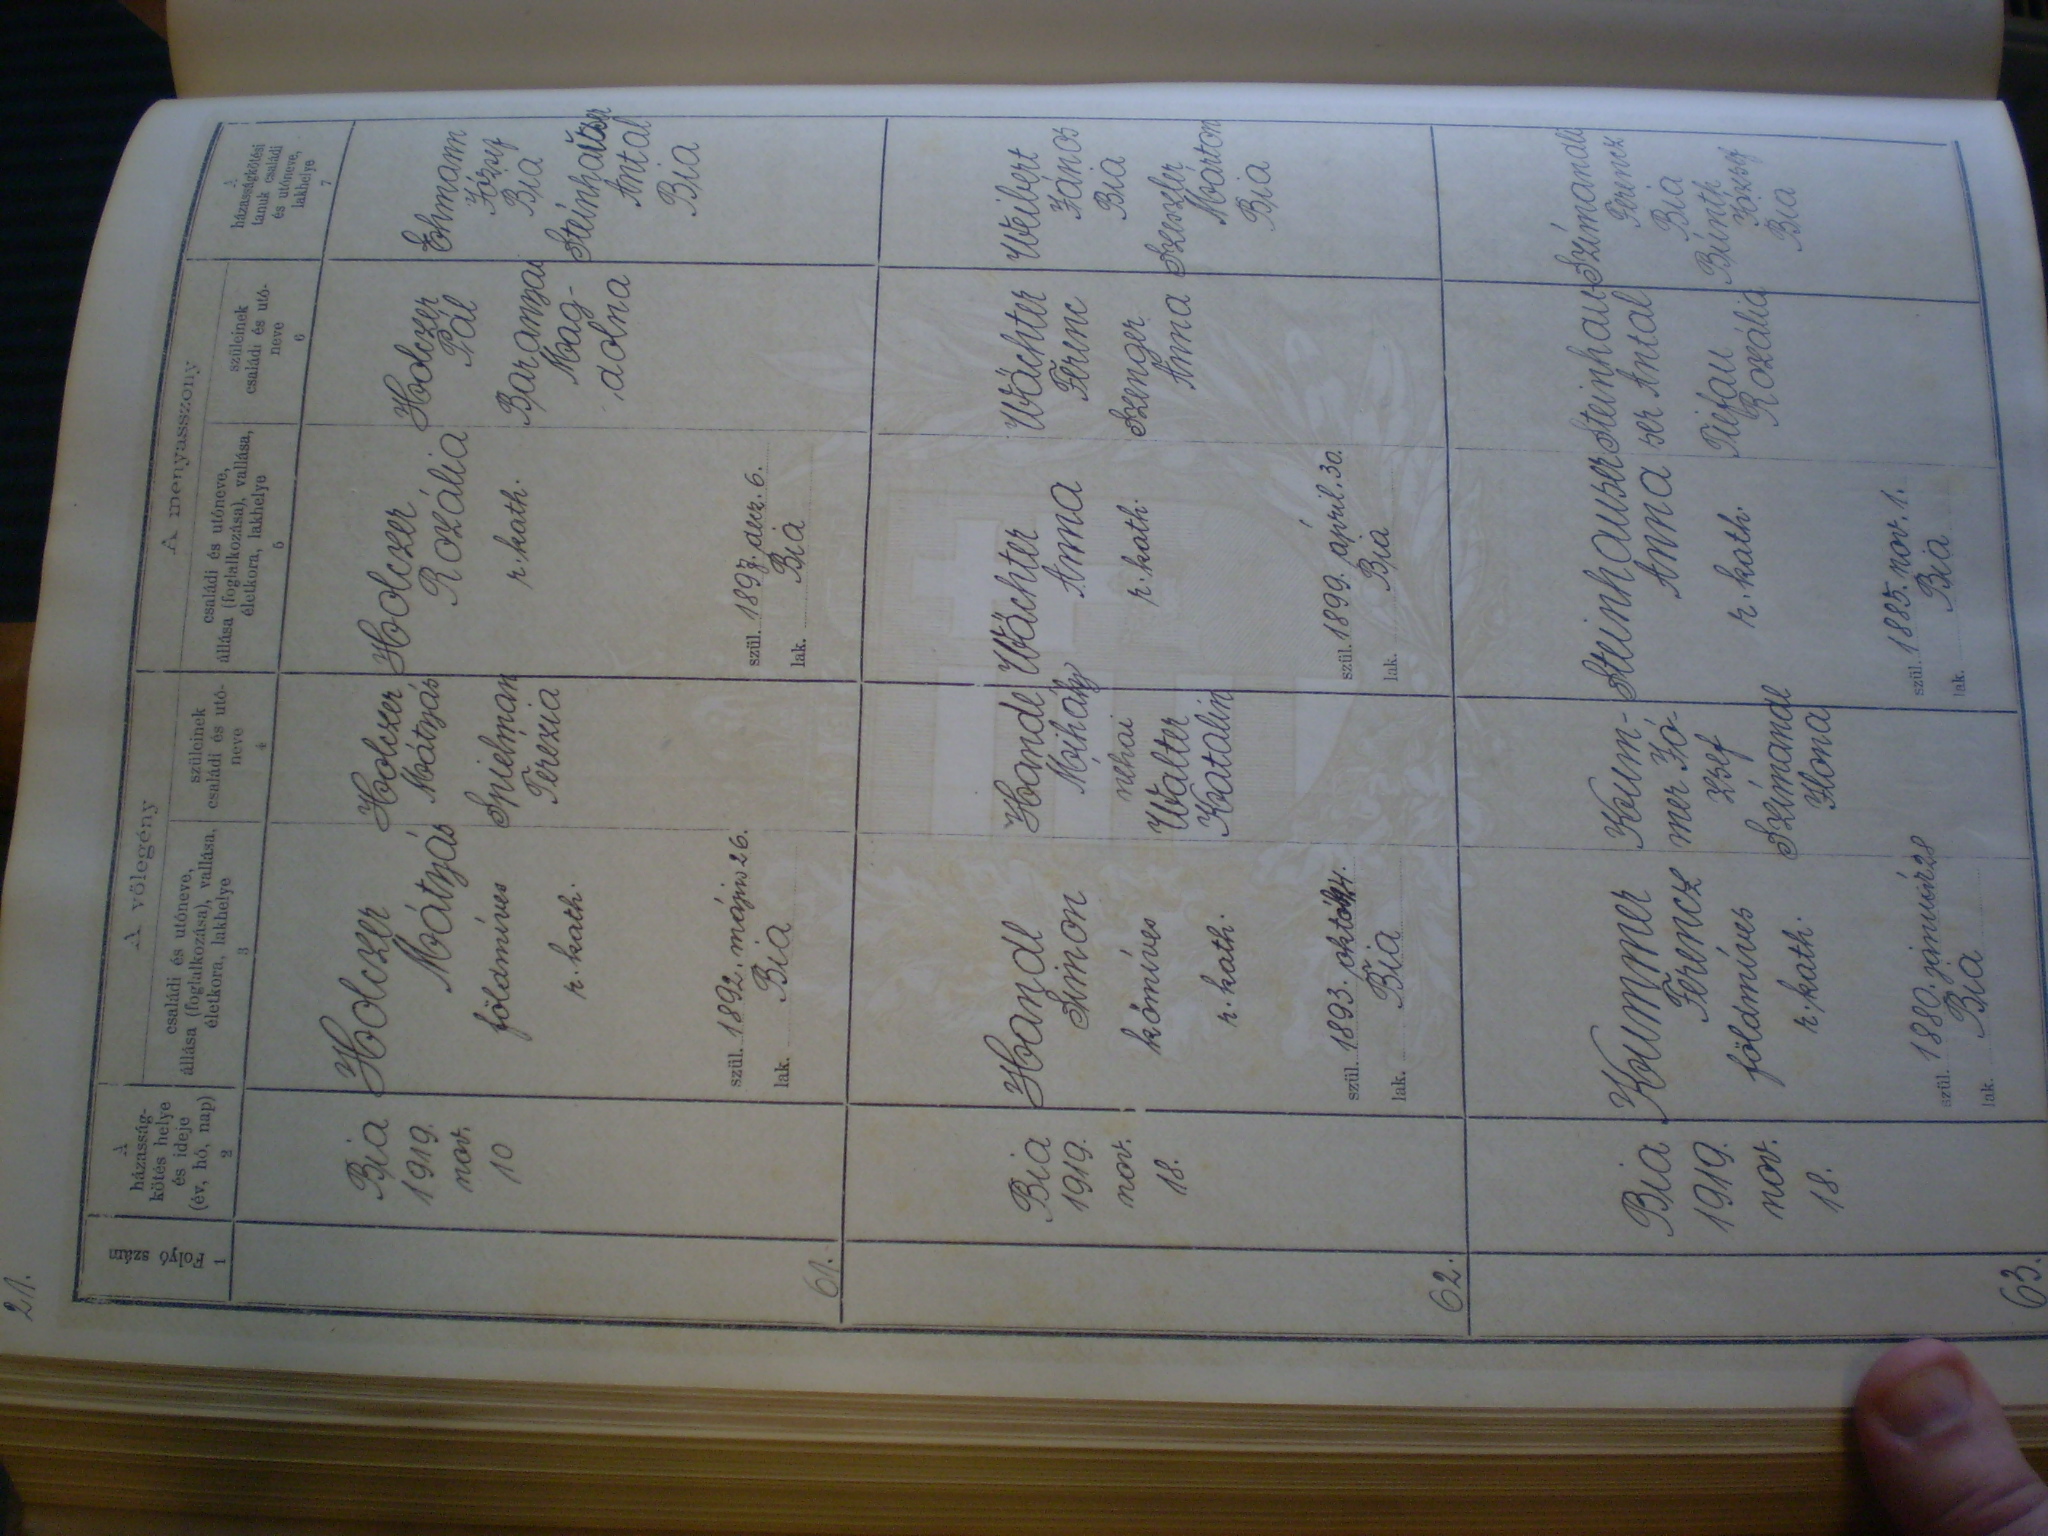 21.
A
házasság-
kötés helye
és ideje
(év, hó, nap)
2
Folyó
szám
1
A vőlegény
családi és utóneve,
állása (foglalkozása), vallása,
életkora, lakhelye
3
szüleinek
családi és utó-
neve
4
A menyasszony
családi és utóneve,
állása (foglalkozása), vallása,
életkora, lakhelye
5
szüleinek
családi és utó-
neve
6
A
házasságkötési
tanuk családi
és utóneve,
lakhelye
7
61.
Bia
1919.
nov.
10
Holczer
Mátyás
földmíves
r. kath.
szül. 1892. május 26.
lak. Bia
Holczer
Mátyás
Spielman
Terézia
Holczer
Rozália
r. kath.
szül. 1897. dec. 6.
lak. Bia
Holczer
Pál
Baranyai
Mag-
dolna
Ehmann
József
Bia
Steinhauser
Antal
Bia
62.
Bia
1919.
nov.
18.
Handl
Simon
kőmíves
r. kath.
szül. 1893. októb
lak. Bia
Handl
Mihály
néhai
Walter
Katalin
Wächter
Anna
r. kath.
szül. 1899. ápril. 30.
lak. Bia
Wächter
Ferenc
Szenger
Anna
Weibert
János
Bia
Márton
Bia
63.
Bia
1919.
nov.
18.
Kummer
Ferencz
földmíves
r. kath.
szül. 1880. január 28
lak. Bia
Kum-
mer Jó-
zsef
Szimandl
Ilona
Steinhauser
Anna
r. kath.
szül. 1885. nov. 1.
lak. Bia
Steinhau-
ser Antal
Rozália
Szimandl
Ferencz
Bia
József
Bia